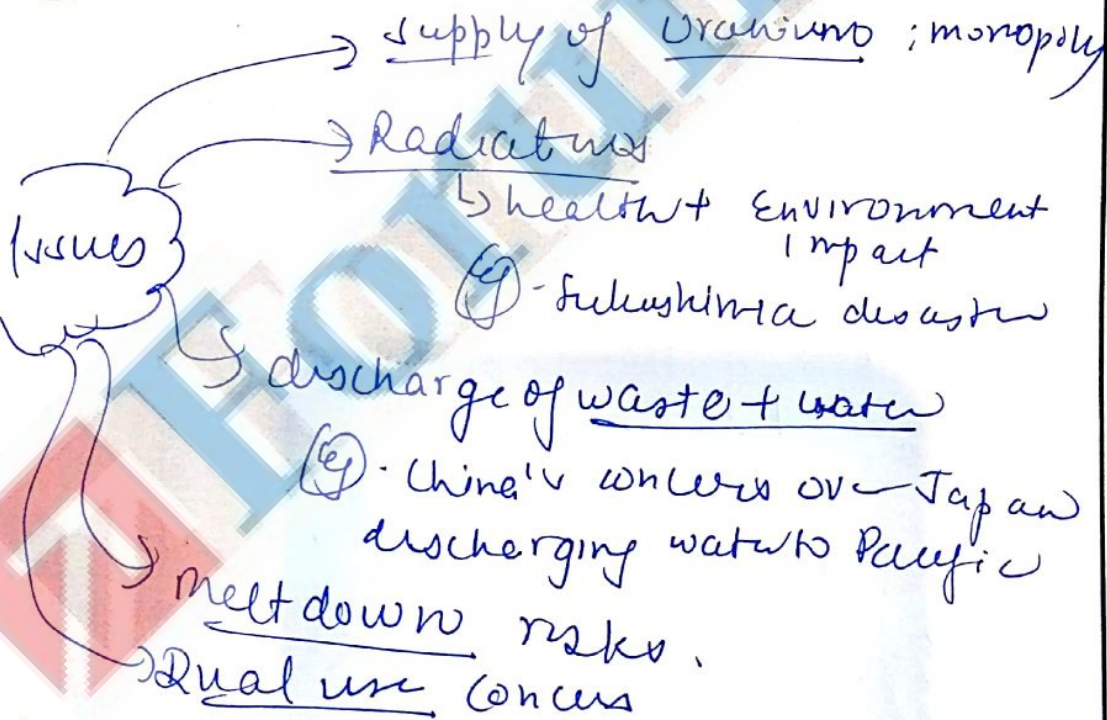 Supply of Uranium ; monopoly
Radiations
health + Environment
Impact
Issues
eg - Fukushima disaster
discharge of waste + water
eg . China's concerns over Japan
discharging water to Pacific
meltdown risks.
Dual use concerns
Forum